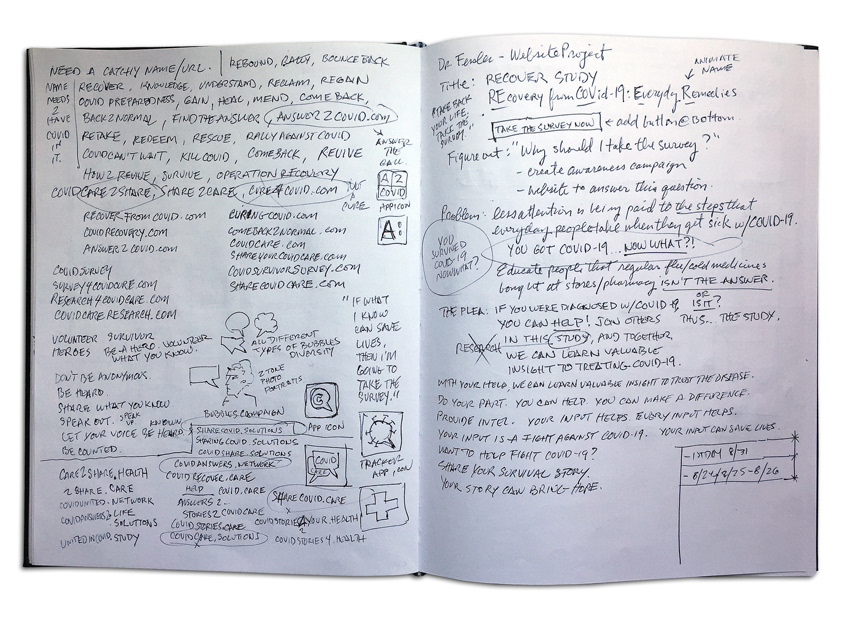 NEED A CATCHY NAME/URL.
REBOUND, RALLY, BOUNCE BACK
NAME NEEDS 2 HAVE COVID IN IT.
RECOVER, KNOWLEDGE, UNDERSTAND, RECLAIM, REGAIN
COVID PREPAREDNESS, GAIN, HEAL, MEND, COME BACK,
BACK2NORMAL, FIND THE ANSWER, ANSWER2COVID.COM
RETAKE, REDEEM, RESCUE, RALLY AGAINST COVID
COVID CAN'T WAIT, KILL COVID, COMEBACK, REVIVE
HOW 2 REVIVE, SURVIVE, OPERATION RECOVERY
COVID CARE2SHARE, SHARE2CARE, CURE4COVID.COM
ANSWER
THE
CALL.
A2
COVID
APP ICON
A:
CURE
RECOVERFROMCOVID.COM
COVIDRECOVERY.COM
ANSWER2COVID.COM
CURINGCOVID.COM
COMEBACK2NORMAL.COM
COVIDCARE.COM
SHAREYOURCOVID.COM
COVIDSURVIVORSURVEY.COM
SHARECOVIDCARE.COM
COVIDSURVEY
SURVEY4COVIDCURE.COM
RESEARCH4COVIDCARE.COM
COVIDCARERESEARCH.COM
VOLUNTEER SURVIVOR
HEROES BE A HERO. VOLUNTEER
WHAT YOU KNOW.
ALL DIFFERENT
TYPES OF BUBBLES
DIVERSITY
2 TONE
PHOTO
PORTRAITS
BUBBLES CAMPAIGN
"IF WHAT
I KNOW
CAN SAVE
LIVES,
THEN I'M
GOING TO
TAKE THE
SURVEY."
DON'T BE ANONYMOUS.
BE HEARD.
SHARE WHAT YOU KNOW
SPEAK OUT. SPEAK UP. KNOWN.
LET YOUR VOICE BE HEARD.
BE COUNTED.
APP ICON
SHARECOVID.SOLUTIONS
SHARINGCOVID.SOLUTIONS
COVIDSHARE.SOLUTIONS
COVIDANSWERS.NETWORK
COVIDRECOVER.CARE
HELP COVID.CARE
ANSWERS2
STORIES2COVIDCARE
COVIDSTORIES.CARE
COVIDCARE.SOLUTIONS
COVID
CARE
TRACKER
APP ICON
SHARECOVID.CARE
COVIDSTORIES4YOUR.HEALTH
COVIDSTORIES4.HEALTH
CARE2SHARE.HEALTH
2SHARE.CARE
COVIDUNITED.NETWORK
COVIDANSWERS.LIFE
SOLUTIONS
UNITEDINCOVID.STUDY
Dr. Fessler - Website Project
Title: RECOVER STUDY
ANIMATE
NAME
REcovery from COvid-19: Everyday Remedies
"TAKE BACK
YOUR LIFE.
TAKE THE
SURVEY."
TAKE THE SURVEY NOW ← add button @ bottom
Figure out: "Why should I take the survey?"
- create awareness campaign
- website to answer this question.
Problem: less attention is being paid to the steps that
everyday people take when they get sick w/COVID-19.
YOU
SURVIVED
COVID-19
NOW WHAT?
YOU GOT COVID-19... NOW WHAT?!
Educate people that regular flu/cold medicines
bought at stores/pharmacy ISN'T THE ANSWER.
OR
IS IT?
THE PLEA: IF YOU WERE DIAGNOSED W/COVID-19,
YOU CAN HELP! JOIN OTHERS THUS... THE STUDY.
RESEARCH
IN THIS STUDY, AND TOGETHER
WE CAN LEARN VALUABLE
INSIGHT TO TREATING COVID-19.
WITH YOUR HELP, WE CAN LEARN VALUABLE INSIGHT TO TRUST THE DISEASE.
DO YOUR PART. YOU CAN HELP. YOU CAN MAKE A DIFFERENCE.
PROVIDE INTEL. YOUR INPUT HELPS. EVERY INPUT HELPS.
YOUR INPUT IS A FIGHT AGAINST COVID-19. YOUR INPUT CAN SAVE LIVES.
WANT TO HELP FIGHT COVID-19?
SHARE YOUR SURVIVAL STORY.
YOUR STORY CAN BRING HOPE.
8/21
- 8/24/8/25-8/26